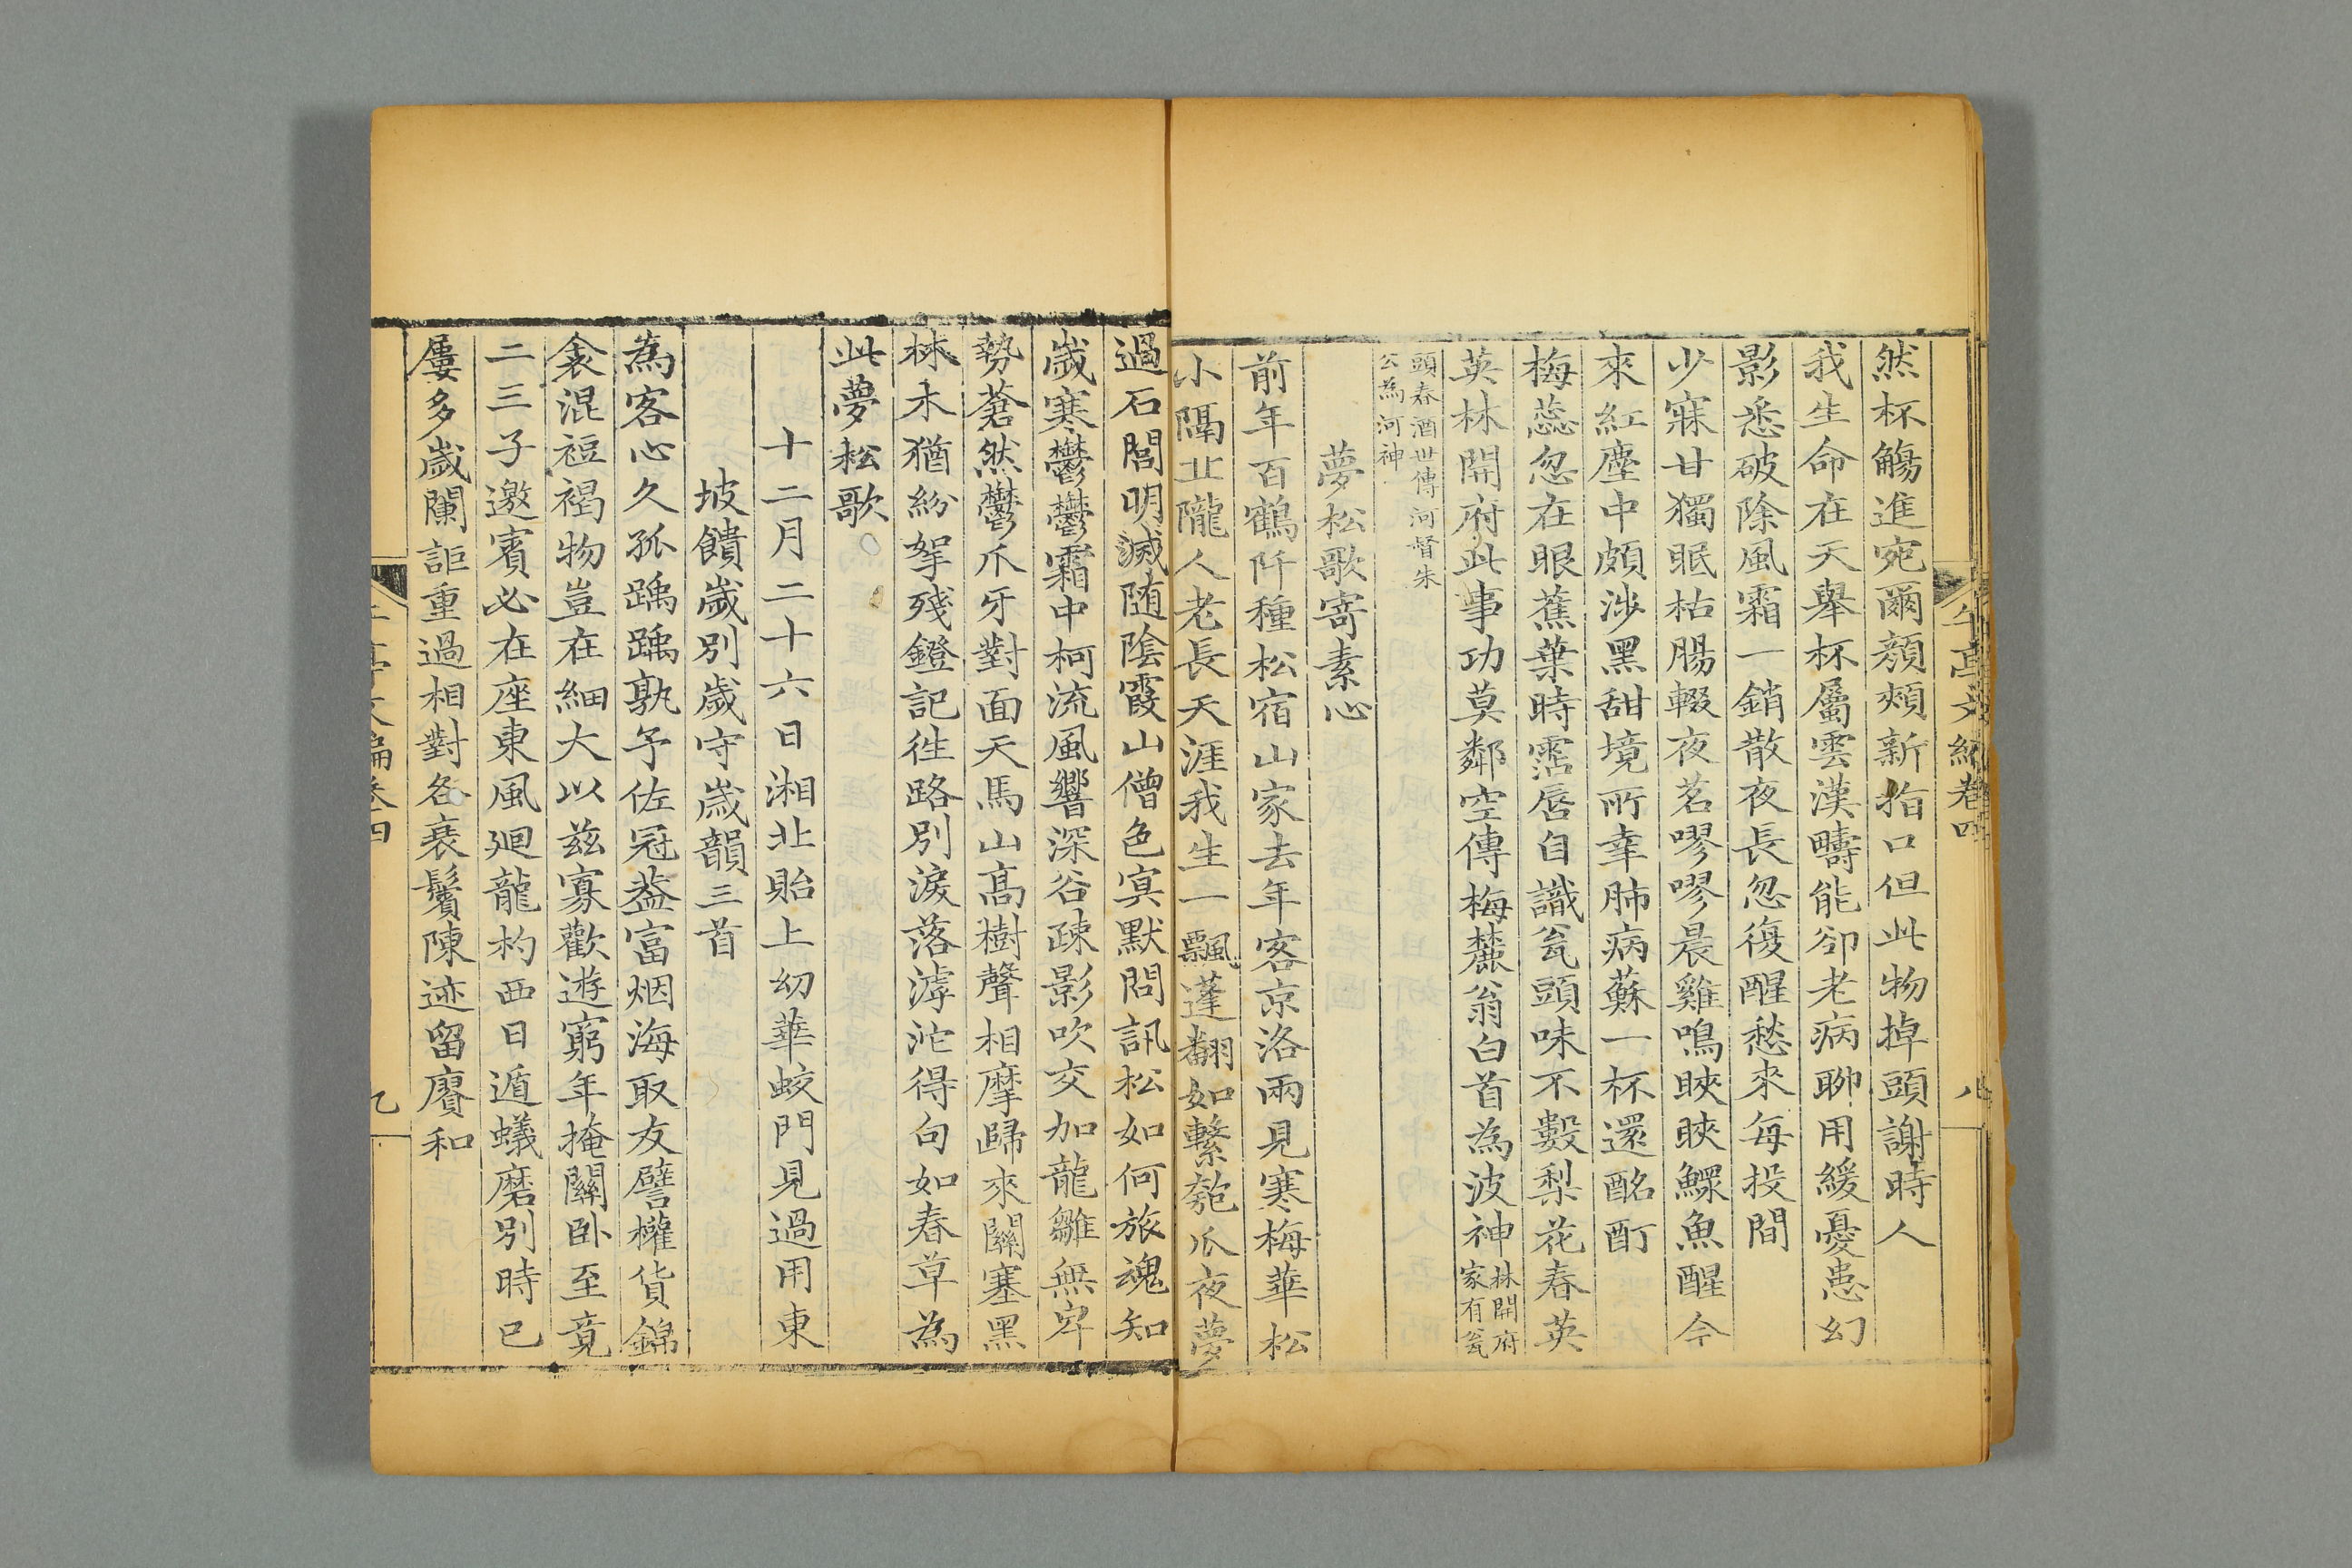 午亭文編卷四
八
然杯觴進宛爾顏頰新指口但此物掉頭謝時人
我生命在天舉杯屬雲漢疇能卻老病聊用緩憂患幻
影悉破除風霜一銷散夜長忽復醒愁來每投間
少寐甘獨眠枯腸輟夜茗嘐嘐晨雞鳴䀹䀹鰥魚醒今
來紅塵中頗涉黑甜境所幸肺病蘇一杯還酩酊
梅蕊忽在眼蕉葉時霑唇自識瓮頭味不數梨花春英
英林開府此事功莫鄰空傳梅麓翁白首為波神林開府家有瓮
頭春酒世傳河督朱公為河神
夢松歌寄素心
前年百鶴阡種松宿山家去年客京洛兩見寒梅華松
小隔丘隴人老長天涯我生一飄蓬翻如繫匏瓜夜夢
過石閭明滅随陰霞山僧色寞默問訊松如何旅魂知
歲寒鬱鬱霜中柯流風響深谷疎影吹交加龍雛無定
勢蒼然鬱爪牙對面天馬山高樹聲相摩歸來關塞黑
林木猶紛拏殘鐙記徃路別淚落滹沱得句如春草為
此夢松歌
十二月二十六日湘北貽上幼華蛟門見過用東
坡饋歲別歲守歲韻三首
為客心久孤踽踽孰予佐冠葢富烟海取友譬權貨錦
衾混裋褐物豈在細大以茲寡歡遊窮年掩關卧至竟
二三子邀賓必在座東風廻龍杓西日遁蟻磨別時已
屢多歲闌詎重過相對各衰鬢陳迹留賡和
午亭文編卷四
九